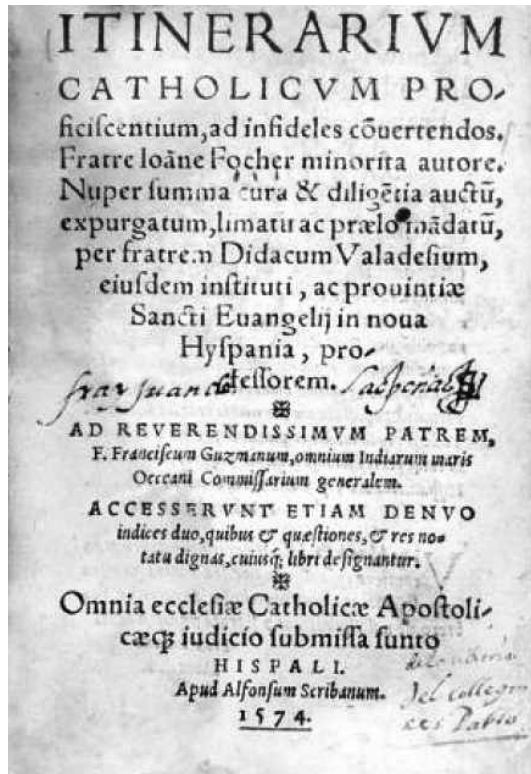 ITINERARIVM
CATHOLICVM PRO-
ficiſcentium, ad infideles cõuertendos.
Fratre Ioãne Focher minorita autore.
Nuper ſumma cura & diligẽtia auctũ,
expurgatum, limatũ ac prælo mãdatũ,
per fratrem Didacum Valadeſium,
eiuſdem inſtituti, ac prouintiæ
Sancti Euangelij in noua
Hyſpania, pro-
feſſorem.
fray Juan de
AD REVERENDISSIMVM PATREM,
F. Franciſcum Guzmanum, omnium Indiarum maris
Occeani Commiſſarium generalem.
ACCESSERVNT ETIAM DENVO
indices duo, quibus & quæſtiones, & res no-
tatu dignas, cuiusq; libri deſignantur.
Omnia eccleſiæ Catholicæ Apoſtoli-
cæq; iudicio ſubmiſſa ſunto
HISPALI.
Apud Alfonſum Scribanum.
1574.
del collegio